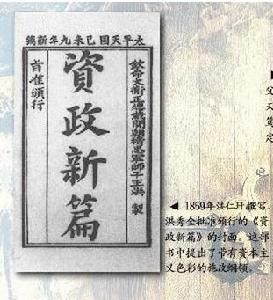 太平天囯己未九年新鐫
欽命文衡正總裁開朝精忠軍師干王洪 製
資政新篇
旨准頒行
◀ 1859年洪仁玕撰写、
洪秀全批准颁行的《资
政新篇》的封面。这部
书中提出了带有资本主
义色彩的施政纲领。